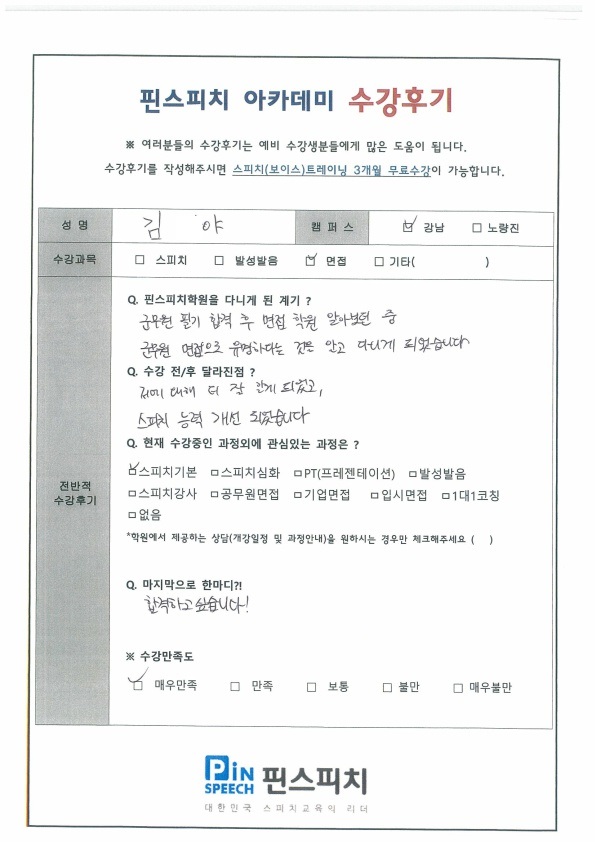 핀스피치 아카데미 수강후기
※ 여러분들의 수강후기는 예비 수강생분들에게 많은 도움이 됩니다.
수강후기를 작성해주시면 스피치(보이스)트레이닝 3개월 무료수강이 가능합니다.
성 명 김 야 캠 퍼 스 ☑ 강남 □ 노량진
수강과목 □ 스피치 □ 발성발음 ☑ 면접 □ 기타( )
전반적
수강후기
Q. 핀스피치학원을 다니게 된 계기 ?
군무원 필기 합격 후 면접 학원 알아보던 중
군무원 면접으로 유명하다는 것을 알고 다니게 되었습니다
Q. 수강 전/후 달라진점 ?
저에 대해 더 잘 알게 되었고,
스피치 능력 개선 되었습니다
Q. 현재 수강중인 과정외에 관심있는 과정은 ?
☑스피치기본 □스피치심화 □PT(프레젠테이션) □발성발음
□스피치강사 □공무원면접 □기업면접 □입시면접 □1대1코칭
□없음
*학원에서 제공하는 상담(개강일정 및 과정안내)을 원하시는 경우만 체크해주세요 ( )
Q. 마지막으로 한마디?!
합격하고 싶습니다!
※ 수강만족도
☑ 매우만족 □ 만족 □ 보통 □ 불만 □ 매우불만
PiN SPEECH 핀스피치
대한민국 스피치교육의 리더